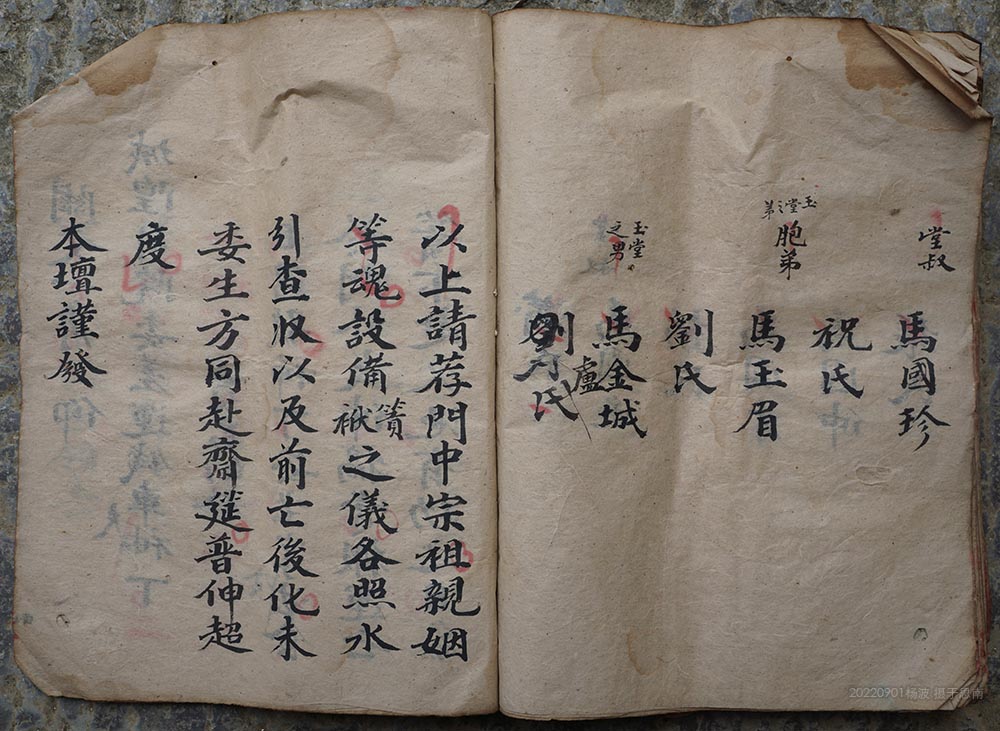 堂叔 馬國珍
祝氏
玉堂之弟 胞弟 馬玉眉
劉氏
玉堂之男 馬金城
盧氏
以上請荐門中宗祖親姻
等魂設備簀袱之儀各照水
引查收以及前亡後化未
委生方同赴齋筵普伸超
度
本壇謹發
20220901杨波 摄于恩南